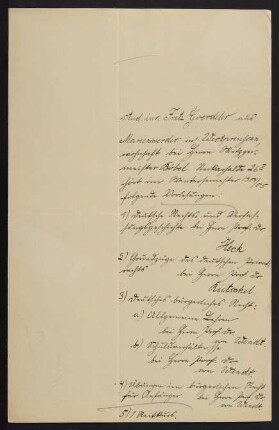 stud. iur. Fritz Goerdeler aus
Marienwerder in Westpreussen
wohnhaft bei Herrn Metzger-
meister Böbel Neckarhalde 26 I
hört im Wintersemester
folgende Vorlesungen
1) Deutsche Rechts und Verfas-
sungsgeschichte bei Herrn Prof. Dr.
Heck
2) Grundzüge des deutschen Privat
rechts
bei Herrn Prof. Dr.
3) Deutsches bürgerliches Recht:
a) Allgemeine Lehren
bei Herrn Prof. Dr.
b) Schuldverhältnisse
bei Herrn Prof. Dr.
4) Übungen im bürgerlichen Recht
für Anfänger bei Herrn Prof. Dr.
5)